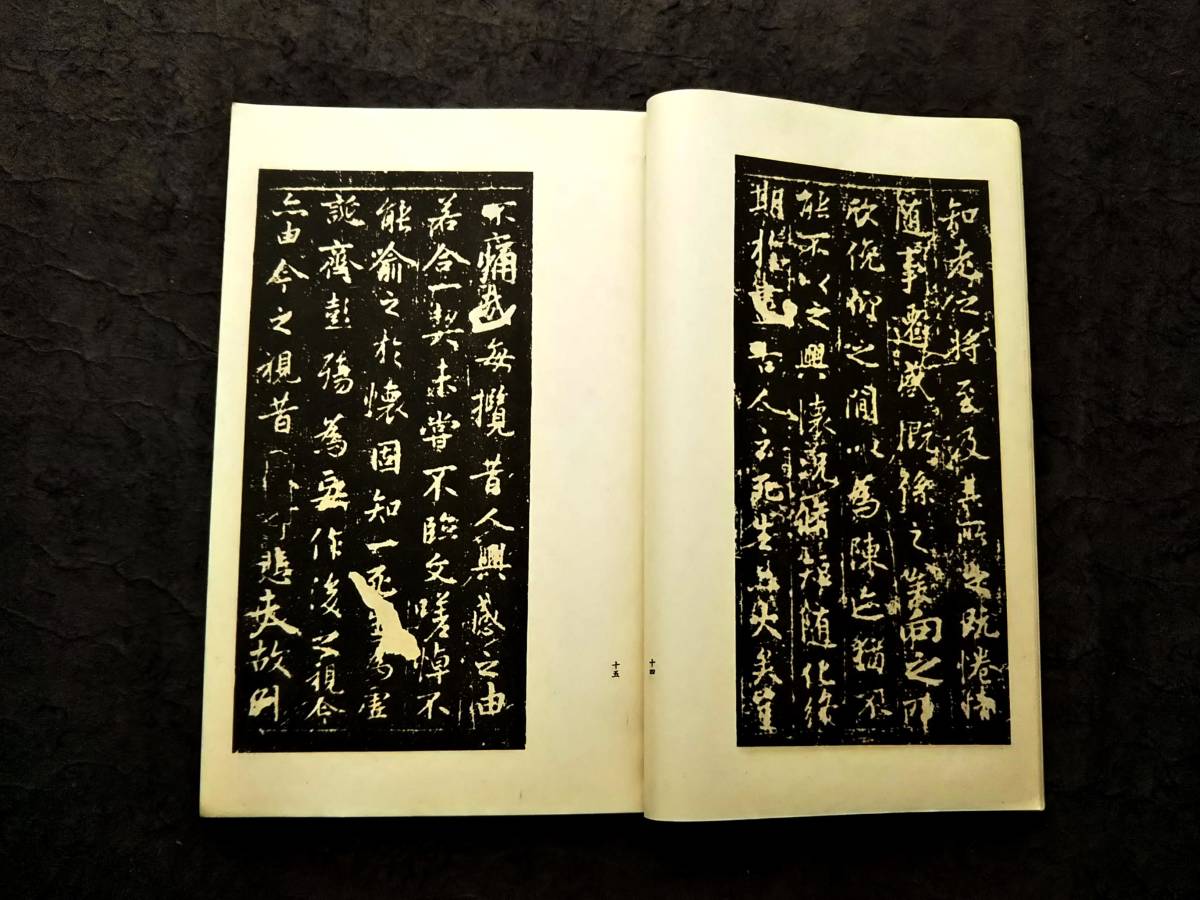 知老之將至及其所之既惓情
随事遷感慨係之矣向之所
欣俛仰之間以為陳迹猶不
能不以之興懷況脩短随化終
期於盡古人云死生亦大矣豈
十四
不痛哉每攬昔人興感之由
若合一契未嘗不臨文嗟悼不
能喻之於懷固知一死生為虛
誕齊彭殤為妄作後之視今
亦由今之視昔悲夫故列
十五